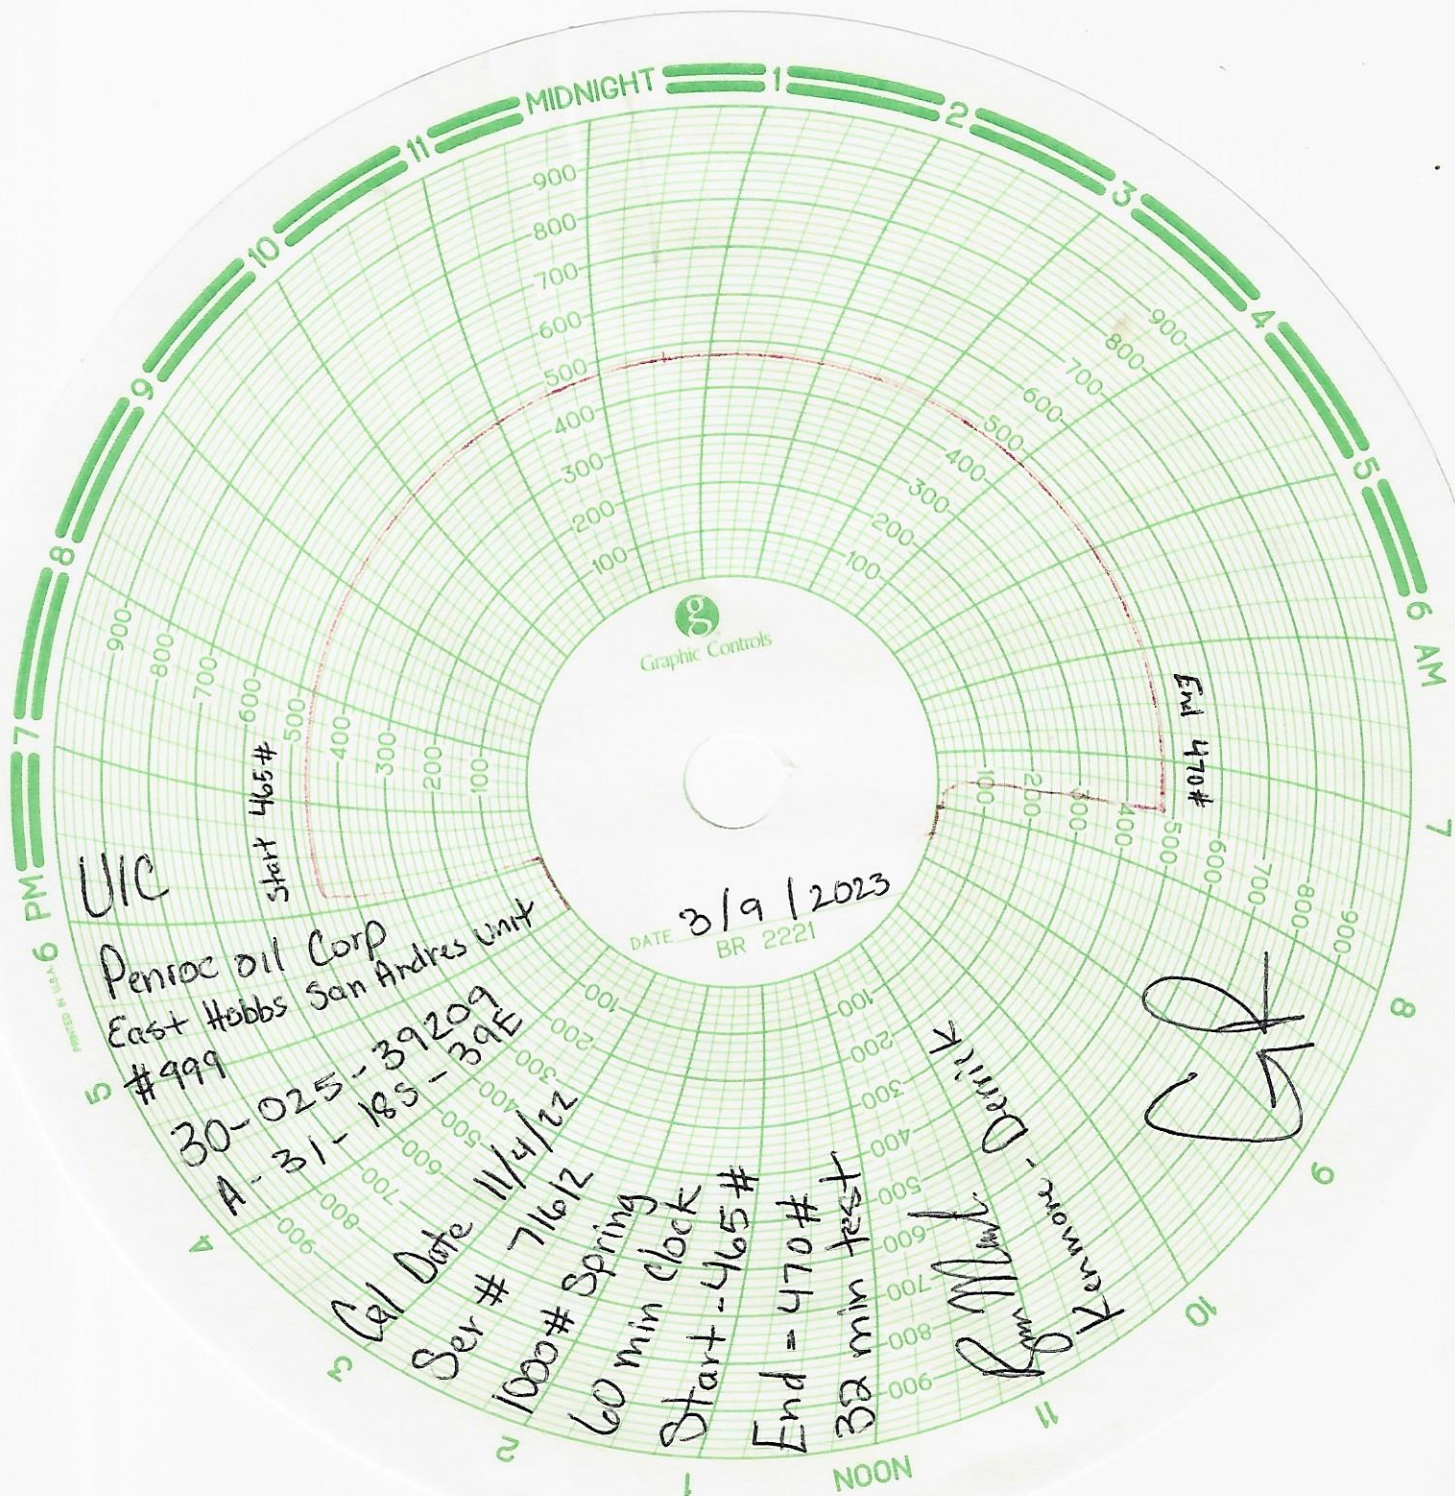 MIDNIGHT
1
2
3
4
5
6 AM
7
8
9
10
11
NOON
1
2
3
4
5
6 PM
7
8
9
10
11
PRINTED IN U.S.A.
900
800
700
600
500
400
300
200
100
900
800
700
600
500
400
300
200
100
100
200
300
400
500
600
700
800
900
100
200
300
400
500
600
700
800
900
100
200
300
400
500
600
700
800
900
900
800
700
600
500
400
300
200
100
g
Graphic Controls
DATE 3/9/2023
BR 2221
Start 465#
End 470#
UIC
Penroc oil Corp
East Hobbs San Andres Unit
#999
30-025-39209
A-31-18S-39E
Cal Date 11/4/22
Ser # 71612
1000# Spring
60 min clock
Start - 465#
End = 470#
32 min test
Kenmore - Derrick